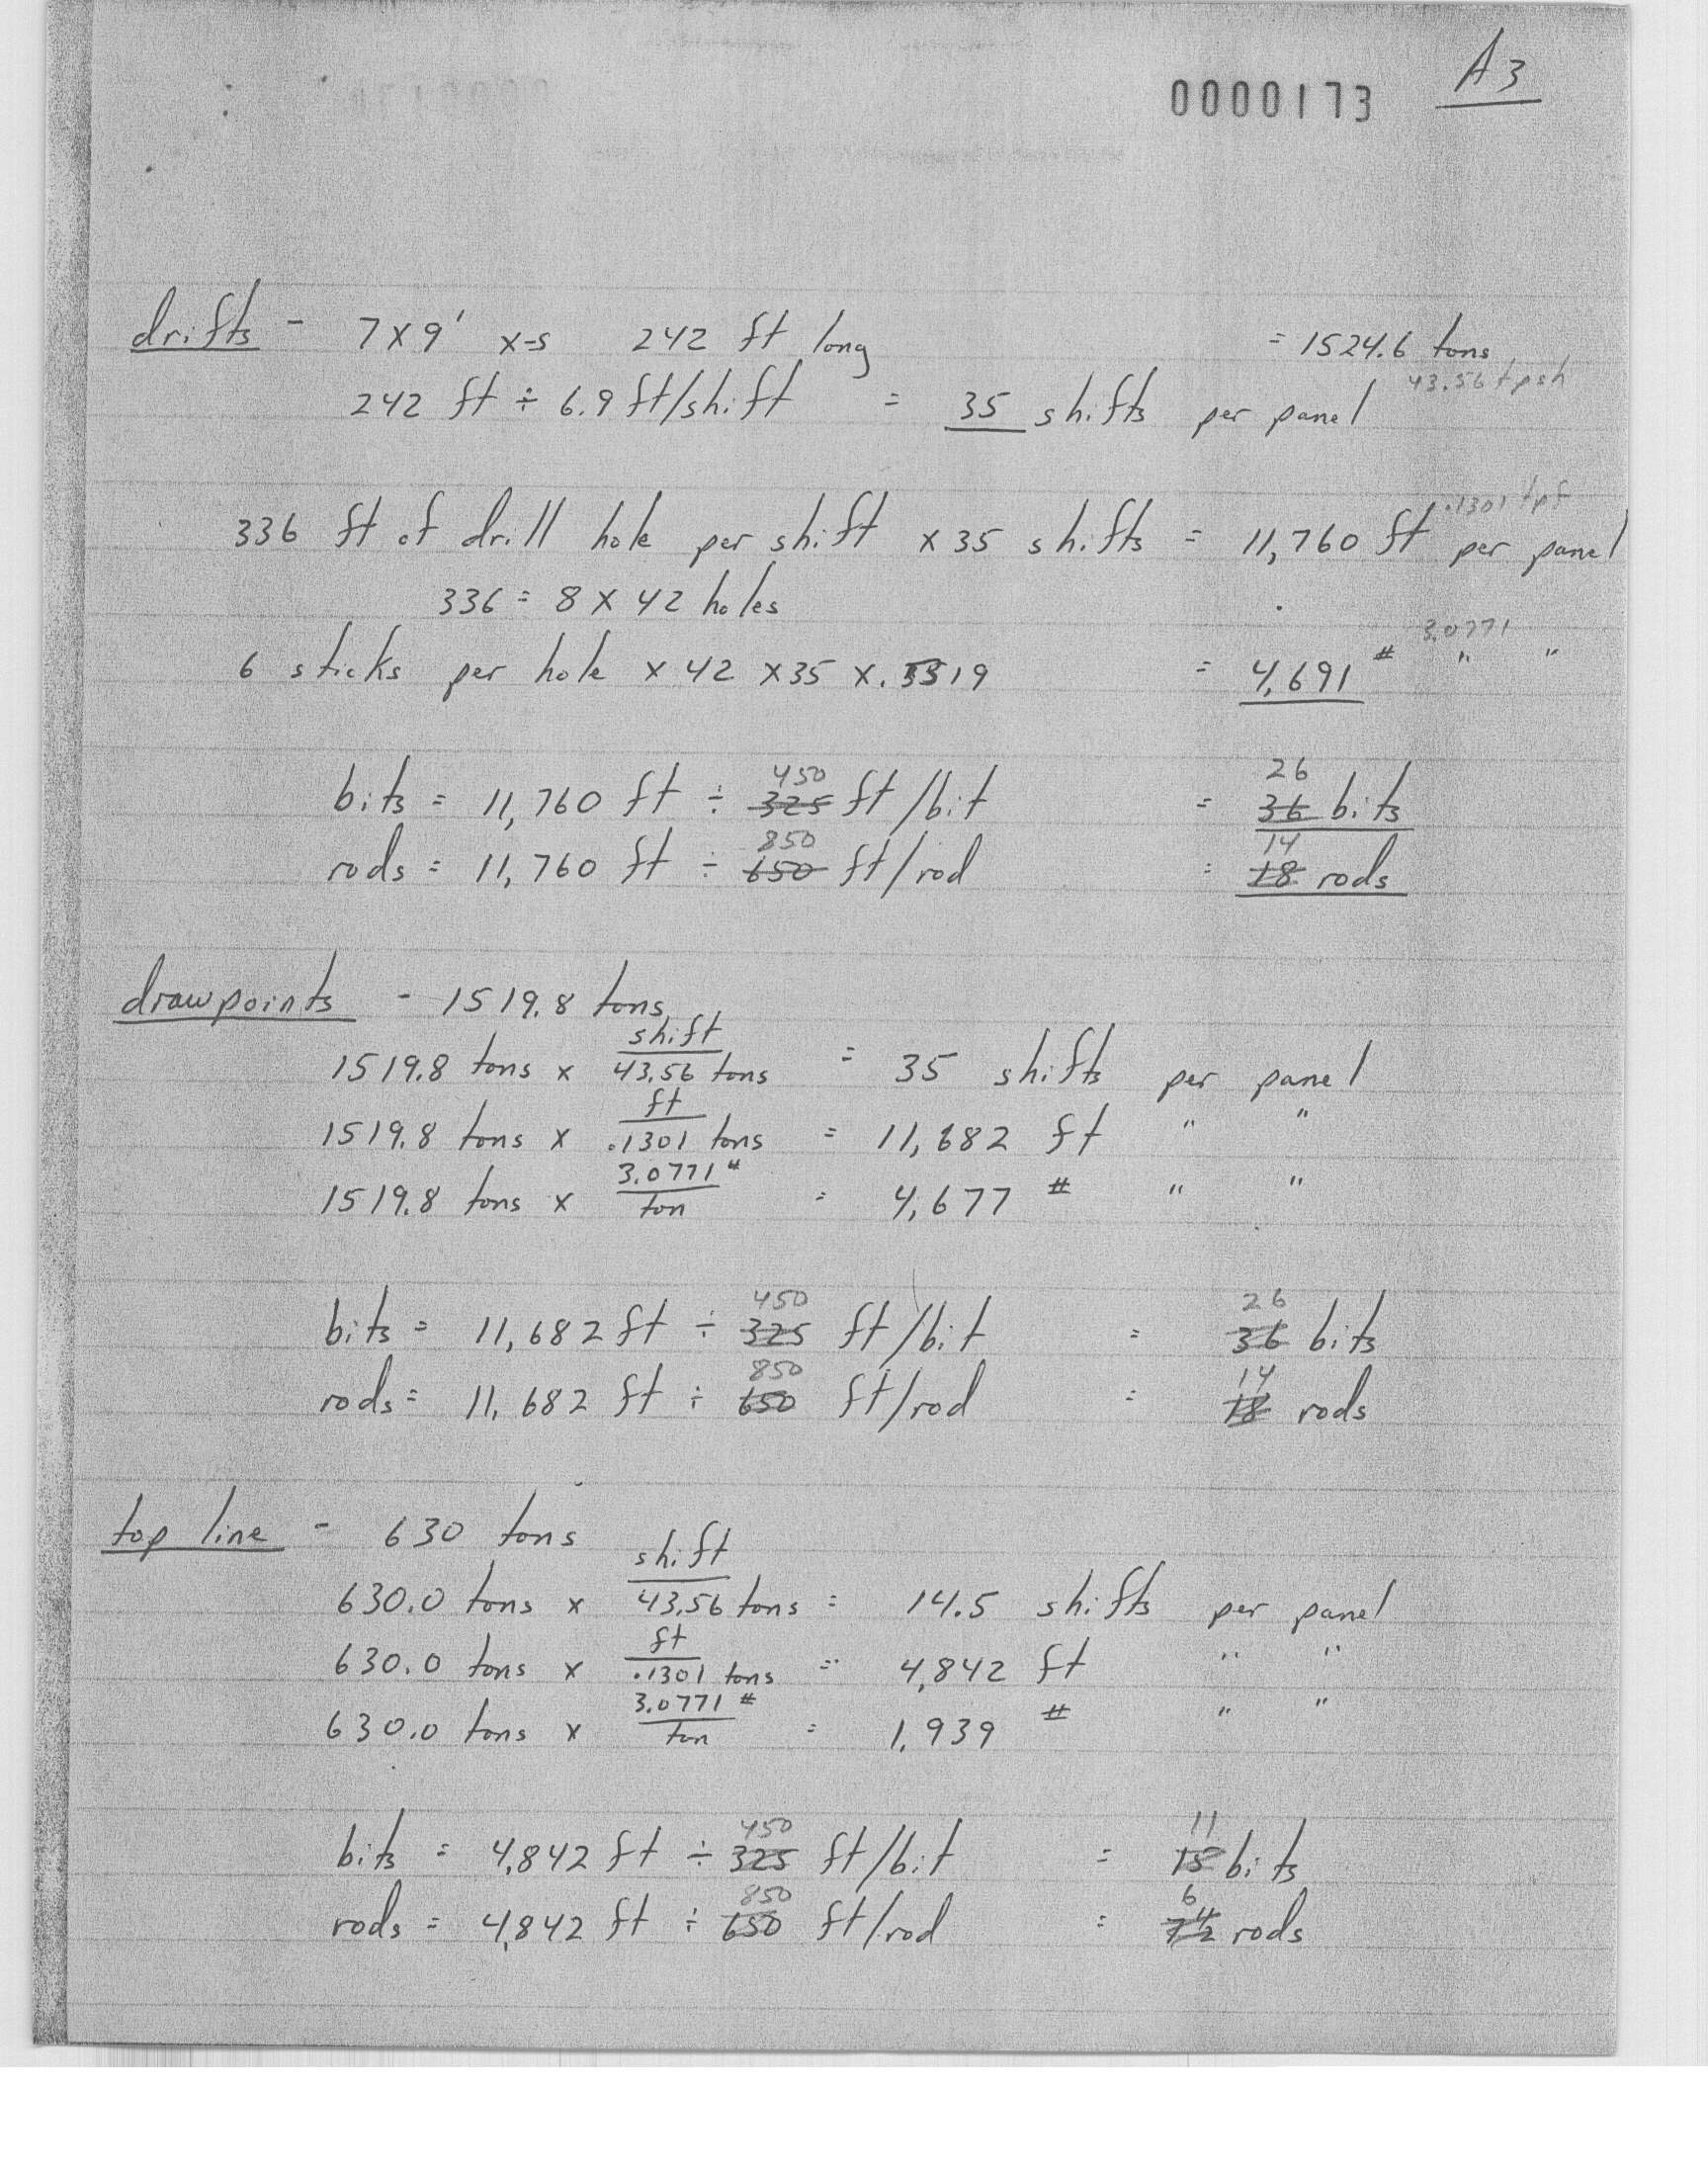 0000173 A3
drifts - 7x9' x-s 242 ft long = 1524.6 tons
43.56 tpsh
242 ft ÷ 6.9 ft/shift = 35 shifts per panel
.1301 tpf
336 ft of drill hole per shift x 35 shifts = 11,760 ft per panel
336 = 8 x 42 holes
3.0771
6 sticks per hole x 42 x 35 x . 19 = 4,691 # " "
450 26
bits = 11,760 ft ÷ 325 ft/bit = 36 bits
850 14
rods = 11,760 ft ÷ 650 ft/rod = 18 rods
drawpoints - 1519.8 tons
shift
1519.8 tons x 43.56 tons = 35 shifts per panel
ft
1519.8 tons x .1301 tons = 11,682 ft " "
3.0771 #
1519.8 tons x ton = 4,677 # " "
450 26
bits = 11,682 ft ÷ 325 ft/bit = 36 bits
850 14
rods = 11,682 ft ÷ 650 ft/rod = 18 rods
top line - 630 tons
shift
630.0 tons x 43.56 tons = 14.5 shifts per panel
ft
630.0 tons x .1301 tons = 4,842 ft " "
3.0771 #
630.0 tons x ton = 1,939 # " "
450 11
bits = 4,842 ft ÷ 325 ft/bit = 15 bits
850 6
rods = 4,842 ft ÷ 650 ft/rod = 7½ rods